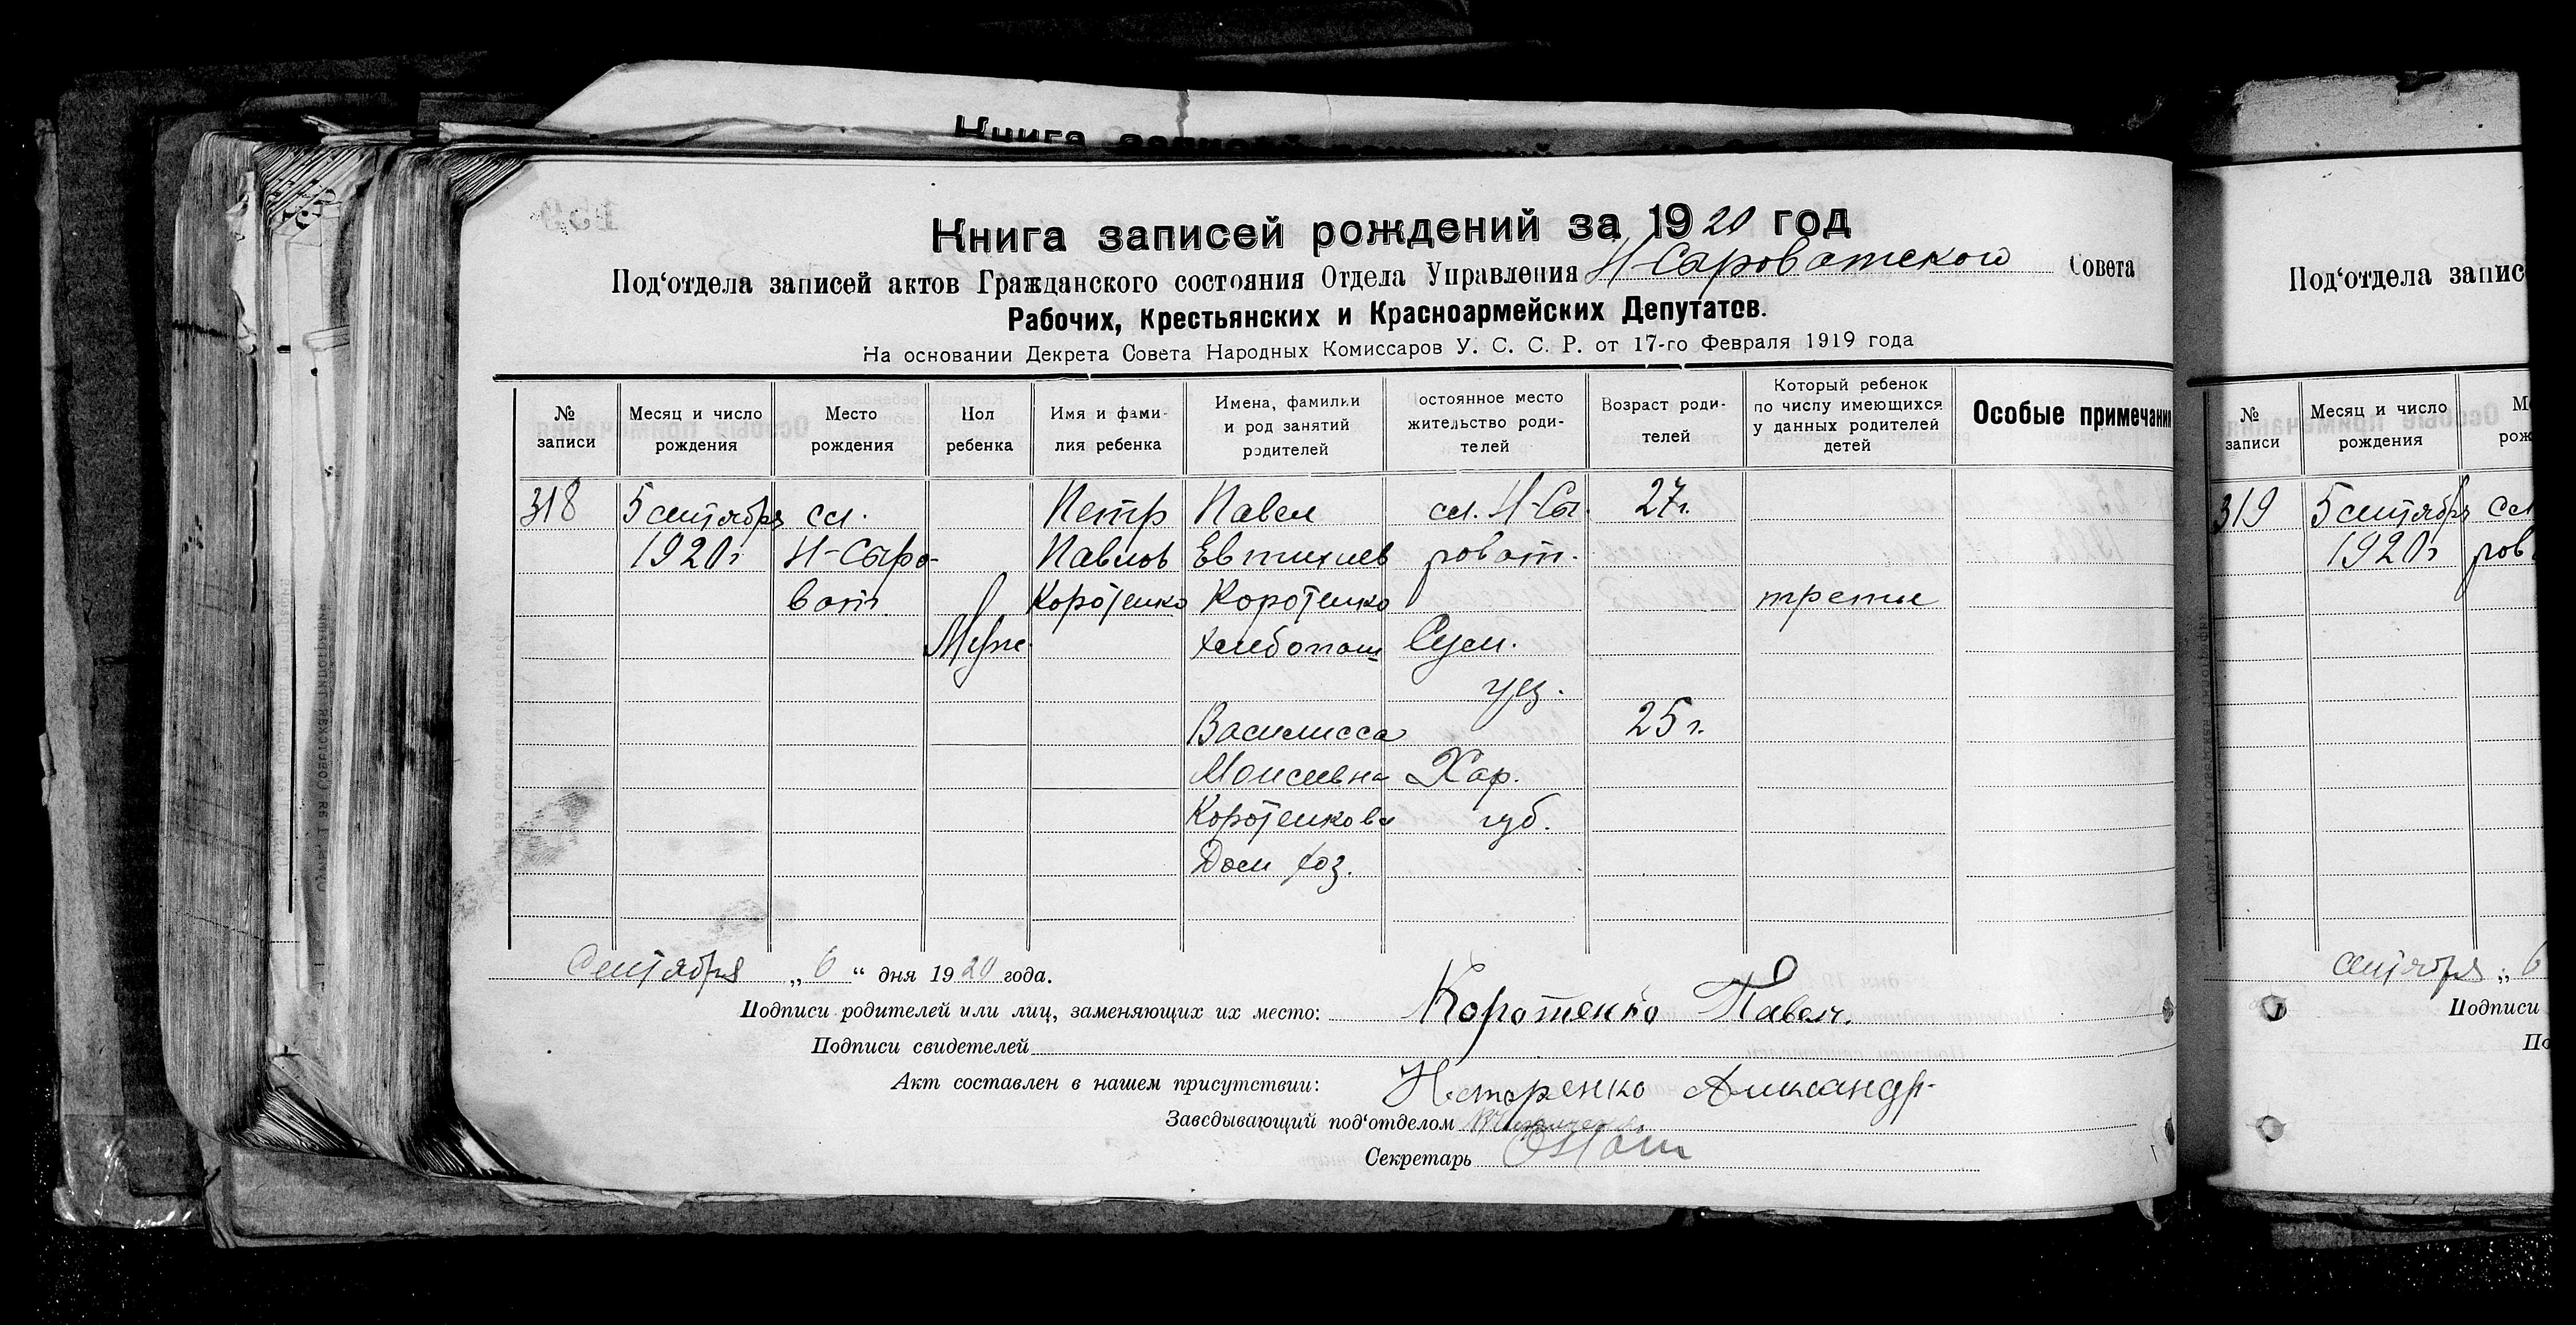 Книга записей
Книга записей рождений за 1920 год
Под‘отдела записей актов Гражданского состояния Отдела Управления Н-Сыроватского Совета
Рабочих, Крестьянских и Красноармейских Депутатов.
На основании Декрета Совета Народных Комиссаров У. С. С. Р. от 17-го Февраля 1919 года
№ записи
Месяц и число рождения
Место рождения
Пол ребенка
Имя и фами-
лия ребенка
Имена, фамилии
и род занятий
родителей
остоянное место
жительство роди-
телей
Возраст роди-
телей
Который ребенок
по числу имеющихся
у данных родителей
детей
Особые примечания
318
5 сентября
1920 г
сл.
Н-Сыро-
ват.
Муж.
Петр
Павлов
Коротенко
Павел
Евтихиев
Коротенко
хлебопаш
Василисса
Моисеевна
Коротенкова
Дом хоз.
сл. Н-Сы
роват.
Сум.
уез.
Хар.
губ.
27 г.
25 г.
третье
Сентября „6“ дня 1920 года.
Подписи родителей или лиц, заменяющих их место: Коротенко Павел.
Подписи свидетелей
Акт составлен в нашем присутствии: Нестеренко Александр
Заведывающий под‘отделом
Секретарь
Под‘отдела запис
№
записи
Месяц и число
рождения
Ме
рож
319
5 сентября
1920 г
сл
ров
сентября „6
Подписи
По